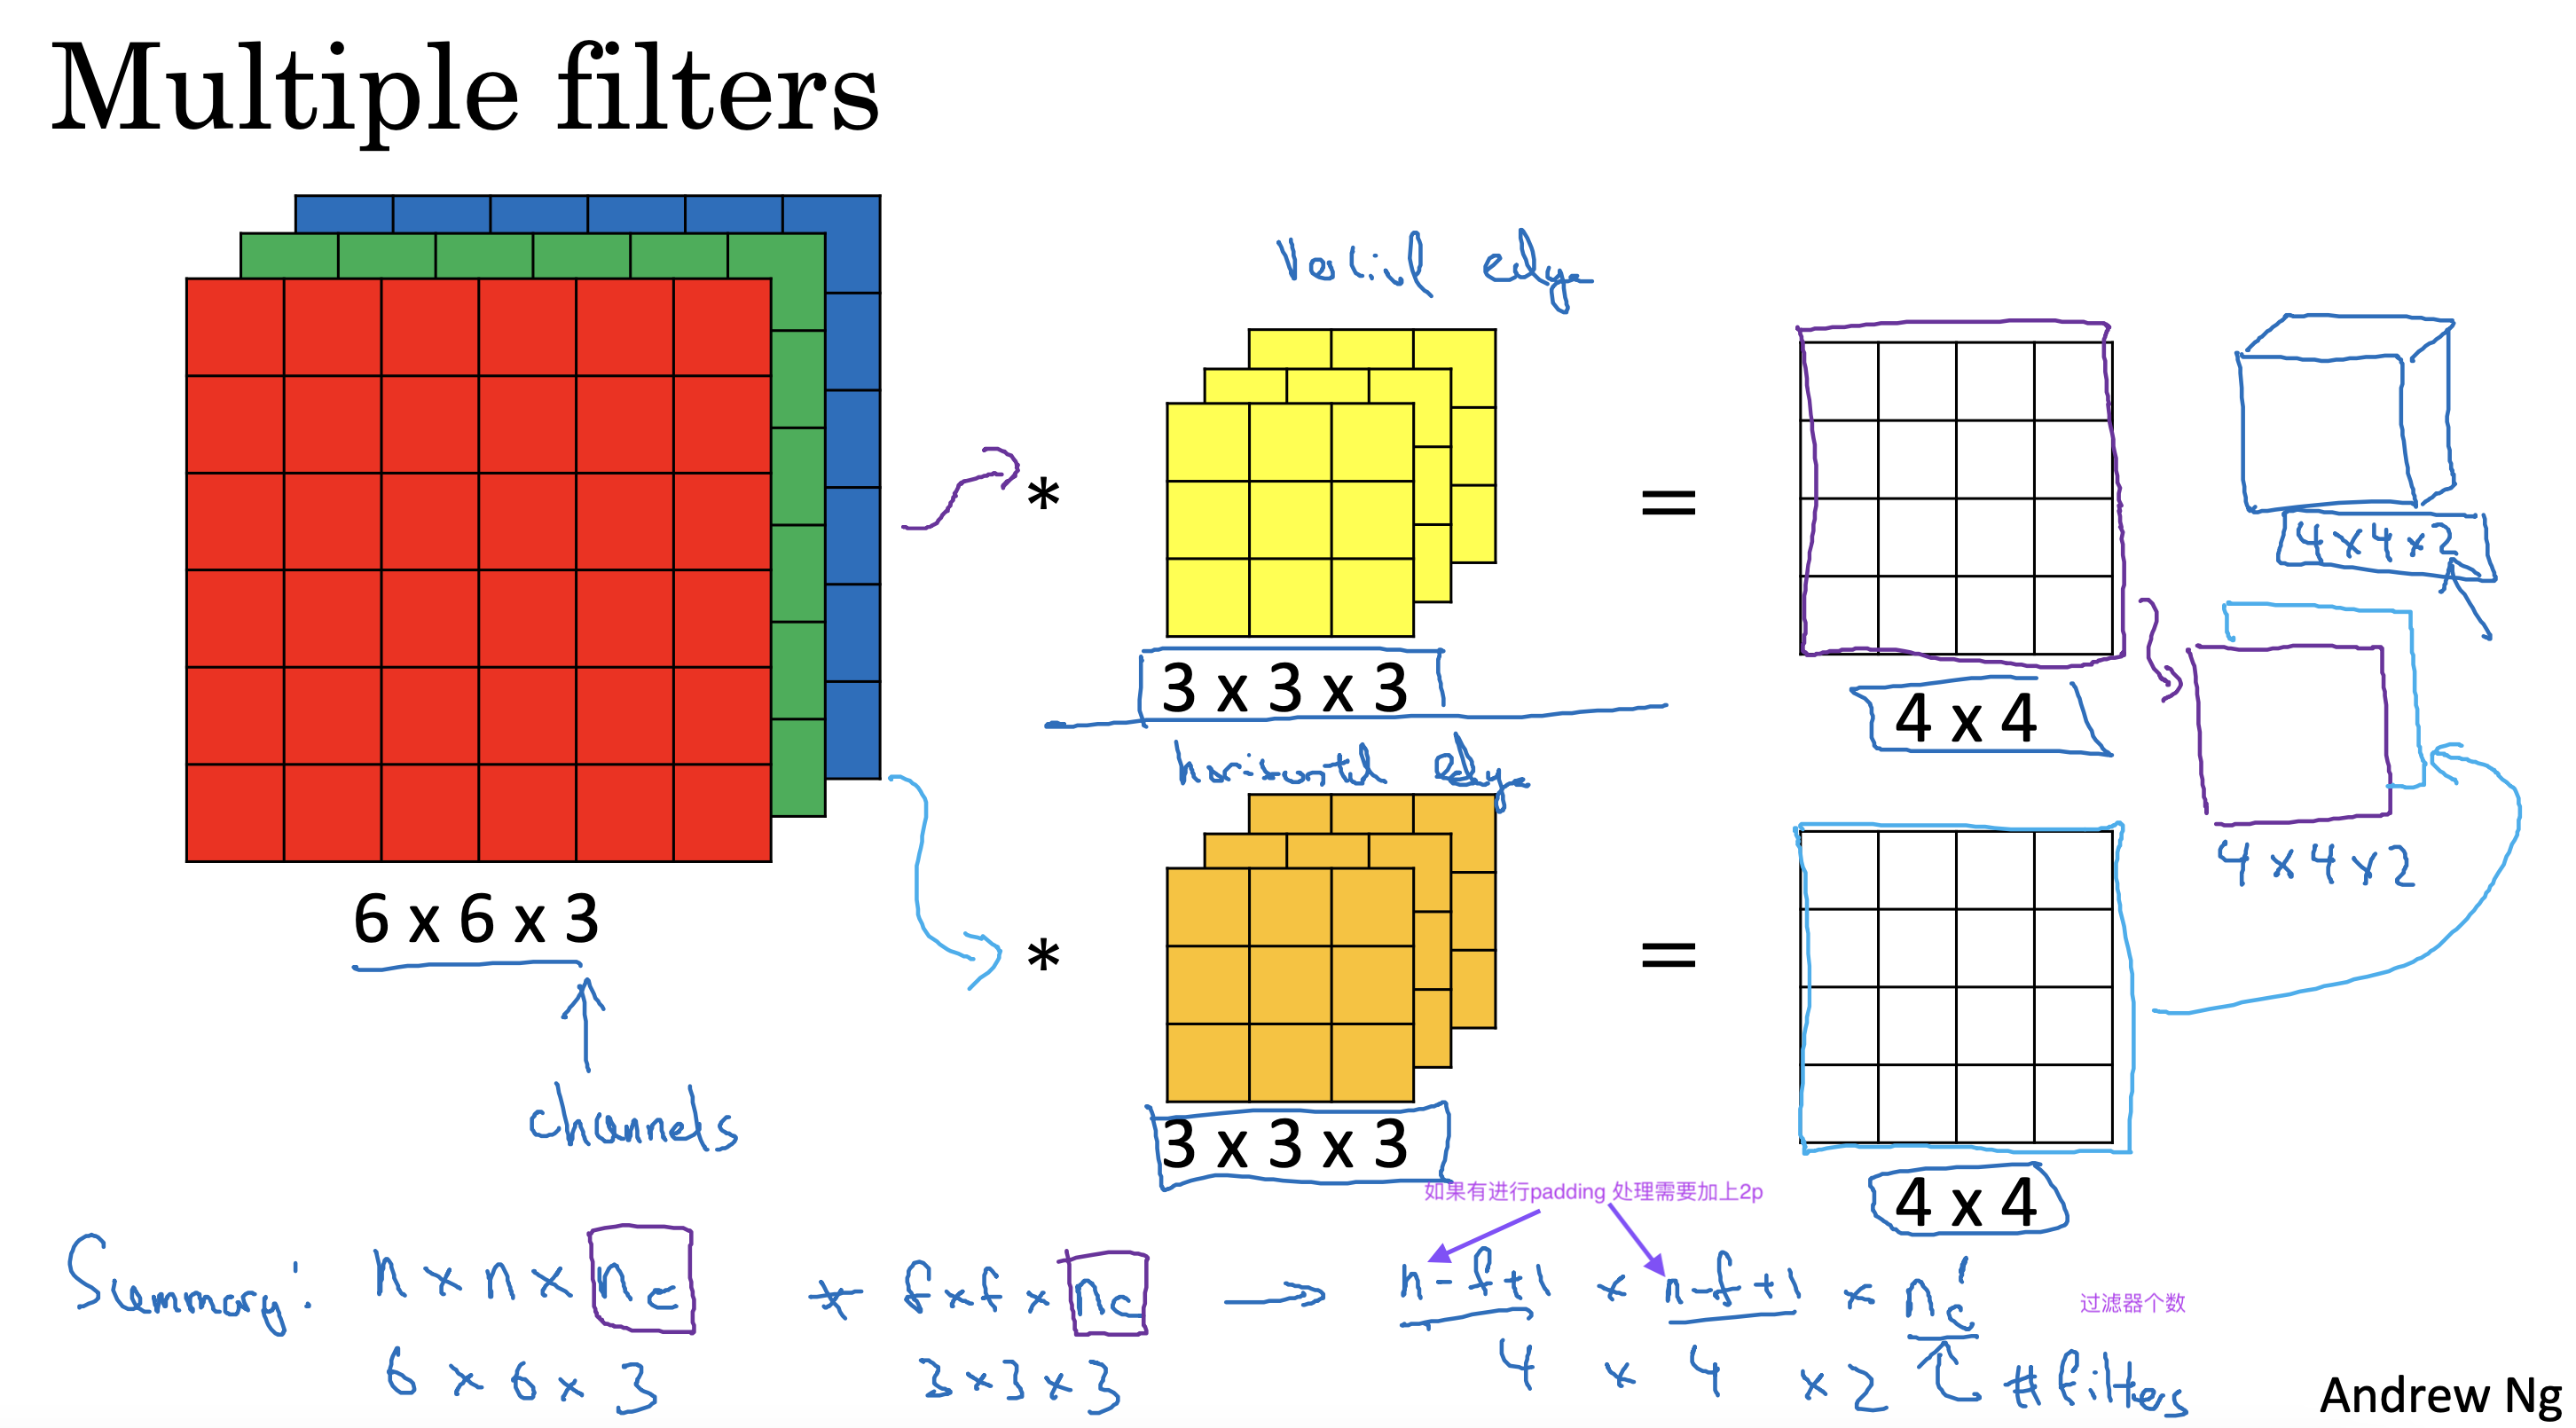 Multiple filters
Vertical edge
*
=
3 x 3 x 3
4 x 4
4 x 4 x 2
horizontal edge
*
=
4 x 4 x 2
6 x 6 x 3
channels
3 x 3 x 3
4 x 4
如果有进行padding 处理需要加上2p
Summary: n x n x nc * f x f x nc → n-f+1 x n-f+1 x nc' 过滤器个数
6 x 6 x 3 3 x 3 x 3 4 x 4 x 2 #filters
Andrew Ng